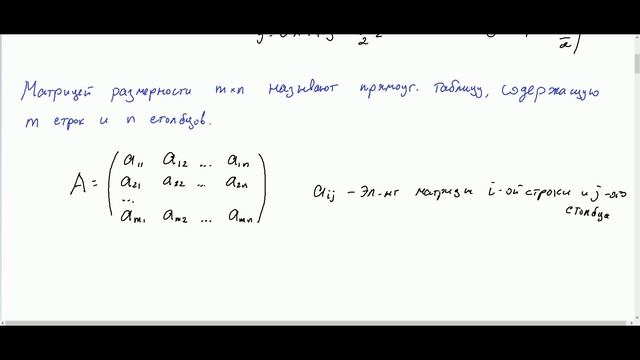 Матрицей размерности m×n называют прямоуг. таблицу, содержащую
m строк и n столбцов.
A = ( a₁₁ a₁₂ ... a₁ₙ
a₂₁ a₂₂ ... a₂ₙ
...
aₘ₁ aₘ₂ ... aₘₙ )
aᵢⱼ – эл-нт матрицы i-ой строки и j-ого
столбца